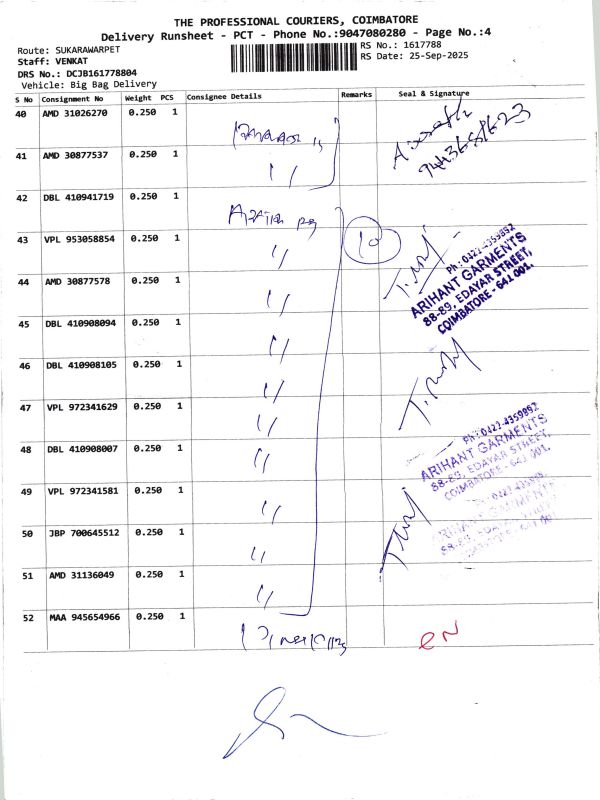 THE PROFESSIONAL COURIERS, COIMBATORE
Delivery Runsheet - PCT - Phone No.:9047080280 - Page No.:4
Route: SUKARAWARPET
RS No.: 1617788
Staff: VENKAT
RS Date: 25-Sep-2025
DRS No.: DCJB161778804
Vehicle: Big Bag Delivery
S No Consignment No Weight PCS Consignee Details Remarks Seal & Signature
40 AMD 31026270 0.250 1
41 AMD 30877537 0.250 1 "
42 DBL 410941719 0.250 1
43 VPL 953058854 0.250 1 " 10
Ph: 0422-4359892
ARIHANT GARMENTS
88-89, EDAYAR STREET,
COIMBATORE - 641 001.
44 AMD 30877578 0.250 1 "
45 DBL 410908094 0.250 1 "
46 DBL 410908105 0.250 1 "
47 VPL 972341629 0.250 1 "
48 DBL 410908007 0.250 1 "
Ph: 0422-4359892
ARIHANT GARMENTS
88-89, EDAYAR STREET,
COIMBATORE - 641 001.
49 VPL 972341581 0.250 1 "
50 JBP 700645512 0.250 1 "
51 AMD 31136049 0.250 1 "
52 MAA 945654966 0.250 1